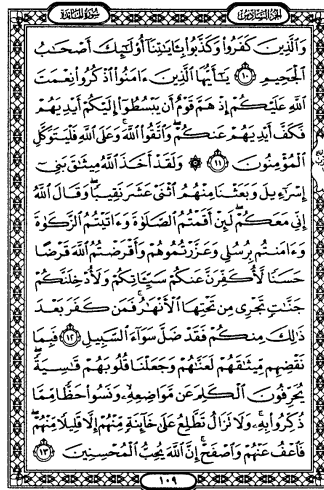 سُورَةُ المَائِدَةِ
الجُزْءُ السَّادِسُ
وَالَّذِينَ كَفَرُوا۟ وَكَذَّبُوا۟ بِـَٔايَـٰتِنَآ أُو۟لَـٰٓئِكَ أَصْحَـٰبُ
ٱلْجَحِيمِ ١٠ يَـٰٓأَيُّهَا ٱلَّذِينَ ءَامَنُوا۟ ٱذْكُرُوا۟ نِعْمَتَ
ٱللَّهِ عَلَيْكُمْ إِذْ هَمَّ قَوْمٌ أَن يَبْسُطُوٓا۟ إِلَيْكُمْ أَيْدِيَهُمْ
فَكَفَّ أَيْدِيَهُمْ عَنكُمْ ۖ وَٱتَّقُوا۟ ٱللَّهَ ۚ وَعَلَى ٱللَّهِ فَلْيَتَوَكَّلِ
ٱلْمُؤْمِنُونَ ١١ ۞ وَلَقَدْ أَخَذَ ٱللَّهُ مِيثَـٰقَ بَنِىٓ
إِسْرَٰٓءِيلَ وَبَعَثْنَا مِنْهُمُ ٱثْنَىْ عَشَرَ نَقِيبًا ۖ وَقَالَ ٱللَّهُ
إِنِّى مَعَكُمْ ۖ لَئِنْ أَقَمْتُمُ ٱلصَّلَوٰةَ وَءَاتَيْتُمُ ٱلزَّكَوٰةَ
وَءَامَنتُم بِرُسُلِى وَعَزَّرْتُمُوهُمْ وَأَقْرَضْتُمُ ٱللَّهَ قَرْضًا
حَسَنًا لَّأُكَفِّرَنَّ عَنكُمْ سَيِّـَٔاتِكُمْ وَلَأُدْخِلَنَّكُمْ
جَنَّـٰتٍ تَجْرِى مِن تَحْتِهَا ٱلْأَنْهَـٰرُ ۚ فَمَن كَفَرَ بَعْدَ
ذَٰلِكَ مِنكُمْ فَقَدْ ضَلَّ سَوَآءَ ٱلسَّبِيلِ ١٢ فَبِمَا
نَقْضِهِم مِّيثَـٰقَهُمْ لَعَنَّـٰهُمْ وَجَعَلْنَا قُلُوبَهُمْ قَـٰسِيَةً ۖ
يُحَرِّفُونَ ٱلْكَلِمَ عَن مَّوَاضِعِهِۦ ۙ وَنَسُوا۟ حَظًّا مِّمَّا
ذُكِّرُوا۟ بِهِۦ ۚ وَلَا تَزَالُ تَطَّلِعُ عَلَىٰ خَآئِنَةٍ مِّنْهُمْ إِلَّا قَلِيلًا مِّنْهُمْ ۖ
فَٱعْفُ عَنْهُمْ وَٱصْفَحْ ۚ إِنَّ ٱللَّهَ يُحِبُّ ٱلْمُحْسِنِينَ ١٣
١٠٩